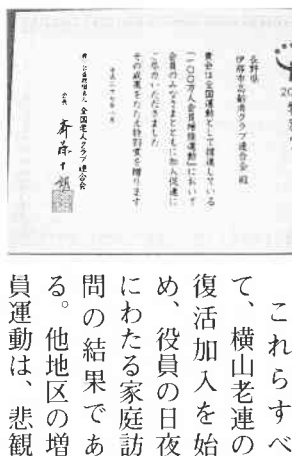 20
長野県
伊那市高齢者クラブ連合会 殿
貴会は全国運動として推進している
「一〇〇万人会員増強運動」において
会員のみなさまとともに加入促進に
ご尽力いただきました
その成果をたたえ特別賞を贈ります
公益財団法人 全国老人クラブ連合会
会長 斉藤十朗
これらすべ
て、横山老連の
復活加入を始
め、役員の日夜
にわたる家庭訪
問の結果であ
る。他地区の増
員運動は、悲観